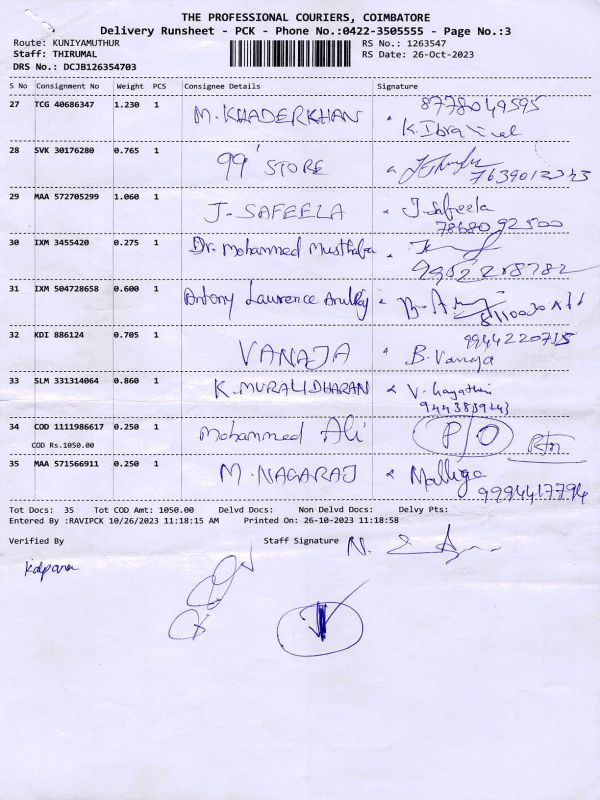 THE PROFESSIONAL COURIERS, COIMBATORE
Delivery Runsheet - PCK - Phone No.:0422-3505555 - Page No.:3
Route: KUNIYAMUTHUR RS No.: 1263547
Staff: THIRUMAL RS Date: 26-Oct-2023
DRS No.: DCJB126354703
S No Consignment No Weight PCS Consignee Details Signature
27 TCG 40686347 1.230 1 M. KHADERKHAN 8778049595
28 SVK 30176280 0.765 1 99' STORE
7639012343
29 MAA 572705299 1.060 1 J-SAFEELA J. Safeela
7868092500
30 IXM 3455420 0.275 1 Dr. Mohammed Musthafa
9952218782
31 IXM 504728658 0.600 1 Antony Lawrence
32 KDI 886124 0.705 1 VANAJA 9944220715
B. Vanaja
33 SLM 331314064 0.860 1 K. MURALIDHARAN V. Gayathri
9443839243
34 COD 1111986617 0.250 1 Mohammed Ali P/O Rtn
COD Rs.1050.00
35 MAA 571566911 0.250 1 M. NAGARAJ Malliga
9994417794
Tot Docs: 35 Tot COD Amt: 1050.00 Delvd Docs: Non Delvd Docs: Delvy Pts:
Entered By :RAVIPCK 10/26/2023 11:18:15 AM Printed On: 26-10-2023 11:18:58
Verified By Staff Signature
Kalpana